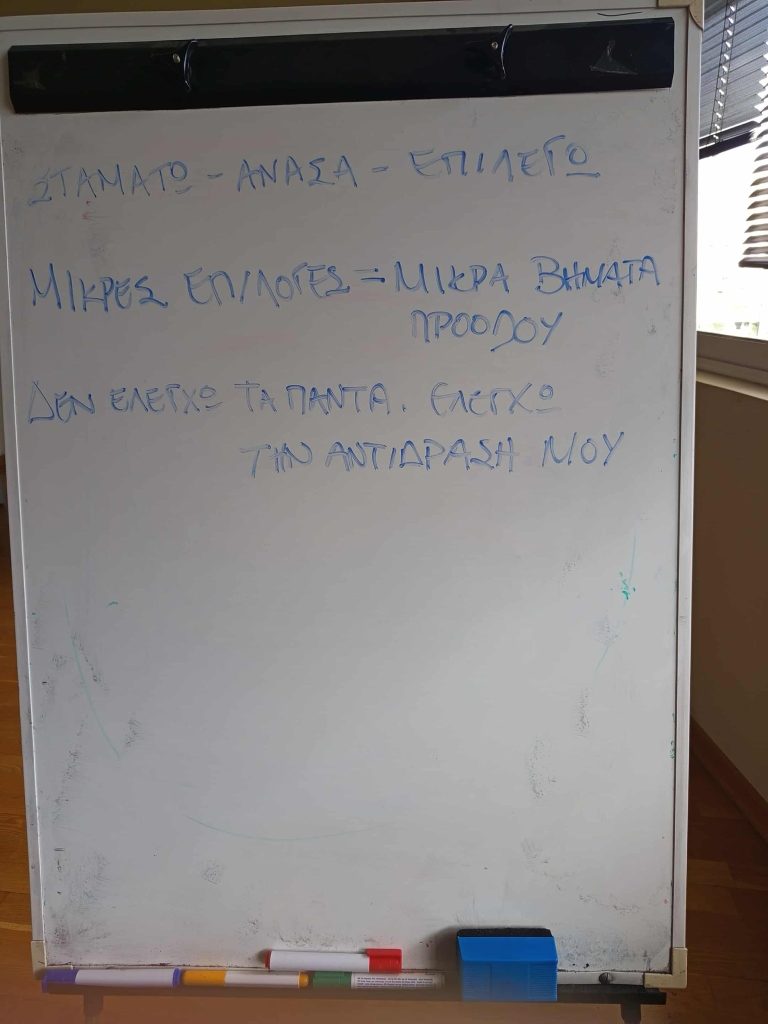 ΣΤΑΜΑΤΩ - ΑΝΑΣΑ - ΕΠΙΛΕΓΩ
ΜΙΚΡΕΣ ΕΠΙΛΟΓΕΣ = ΜΙΚΡΑ ΒΗΜΑΤΑ
ΠΡΟΟΔΟΥ
ΔΕΝ ΕΛΕΓΧΩ ΤΑ ΠΑΝΤΑ. ΕΛΕΓΧΩ
ΤΗΝ ΑΝΤΙΔΡΑΣΗ ΜΟΥ